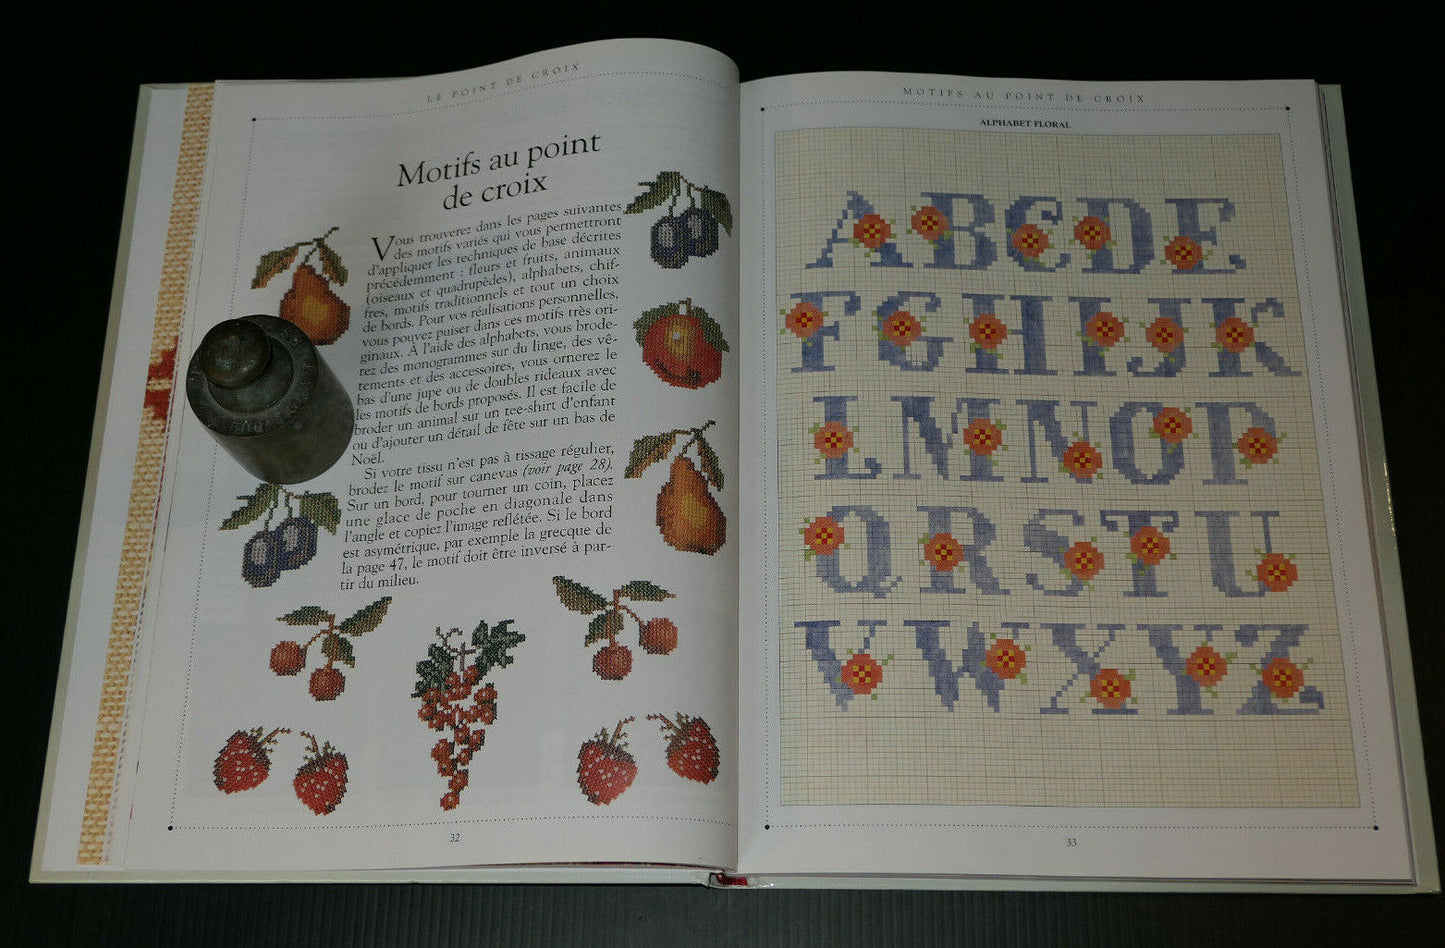 LE POINT DE CROIX
Motifs au point
de croix
Vous trouverez dans les pages suivantes
des motifs variés qui vous permettront
d'appliquer les techniques de base décrites
précédemment : fleurs et fruits, animaux
(oiseaux et quadrupèdes), alphabets, chif-
fres, motifs traditionnels et tout un choix
de bords. Pour vos réalisations personnelles,
vous pouvez puiser dans ces motifs très ori-
ginaux. À l'aide des alphabets, vous brode-
rez des monogrammes sur du linge, des vê-
tements et des accessoires, vous ornerez le
bas d'une jupe ou de doubles rideaux avec
les motifs de bords proposés. Il est facile de
broder un animal sur un tee-shirt d'enfant
ou d'ajouter un détail de fête sur un bas de
Noël.
Si votre tissu n'est pas à tissage régulier,
brodez le motif sur canevas (voir page 28).
Sur un bord, pour tourner un coin, placez
une glace de poche en diagonale dans
l'angle et copiez l'image reflétée. Si le bord
est asymétrique, par exemple la grecque de
la page 47, le motif doit être inversé à par-
tir du milieu.
32
MOTIFS AU POINT DE CROIX
ALPHABET FLORAL
ABCDE
FGHIJK
LMNOP
QRSTU
VWXYZ
33